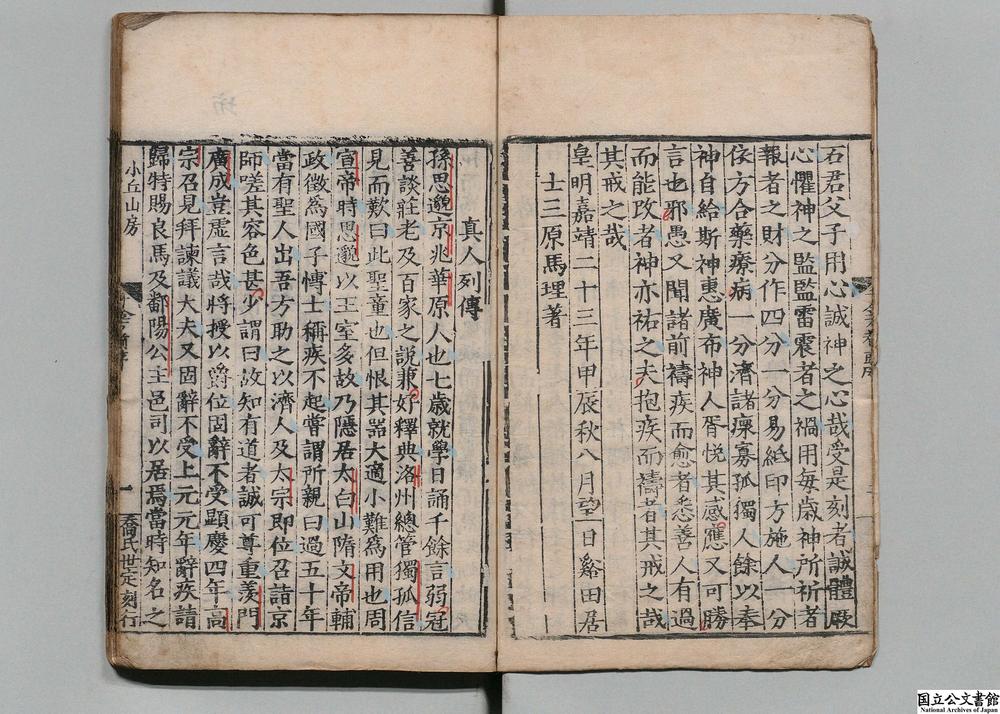 石君父子用心誠神之心哉受是刻者誠體厥
心懼神之監監雷震者之禍用毎歳神所祈者
報者之財分作四分一分易紙印方施人一分
依方合藥療病一分濟諸𤸇寡孤獨人餘以奉
神自給斯神惠廣布神人胥悦其感應又可勝
言也邪愚又聞諸前禱疾而愈者悉善人有過
而能改者神亦祐之夫抱疾而禱者其戒之哉
其戒之哉
皇明嘉靖二十三年甲辰秋八月望一日谿田居
士三原馬理著
真人列傳
孫思邈京兆華原人也七歳就學日誦千餘言弱冠
善談莊老及百家之説兼好釋典洛州總管獨孤信
見而歎曰此聖童也但恨其器大適小難爲用也周
宣帝時思邈以王室多故乃隱居太白山隋文帝輔
政徵爲國子博士稱疾不起嘗謂所親曰過五十年
當有聖人出吾方助之以濟人及太宗即位召詣京
師嗟其容色甚少謂曰故知有道者誠可尊重羨門
廣成豈虚言哉將授以爵位固辭不受顯慶四年高
宗召見拜諫議大夫又固辭不受上元元年辭疾請
歸特賜良馬及鄱陽公主邑司以居焉當時知名之
小丘山房
一
喬氏世定刻行
国立公文書館
National Archives of Japan